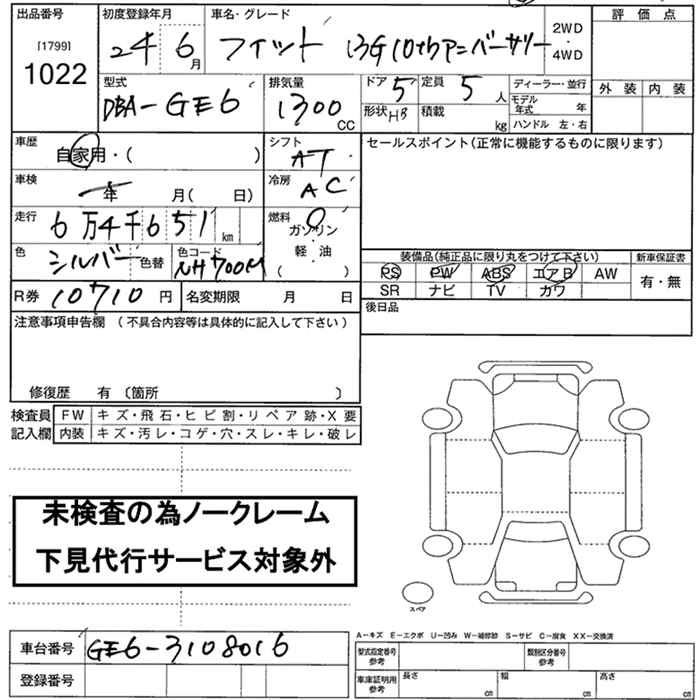 出品番号 初度登録年月 車名・グレード 評価点
[1799]
1022
24 6月 フィット 13G 10thアニバーサリー 2WD・4WD
型式 排気量 ドア 定員 ディーラー・並行 外装 内装
DBA-GE6 1300cc 5 5人
形状 HB 積載 kg モデル年式 年
ハンドル 左・右
車歴 自家用・( ) シフト AT セールスポイント(正常に機能するものに限ります)
車検 年 月( 日) 冷房 AC
走行 6万4千651km 燃料 ガソリン・軽油( )
色 シルバー 色替 色コード NH700M
装備品(純正品に限り丸をつけて下さい) 新車保証書
PS PW ABS エアB AW 有・無
SR ナビ TV カワ
R券 10710円 名変期限 月 日 後日品
注意事項申告欄 (不具合内容等は具体的に記入して下さい)
修復歴 有 (箇所 )
検査員 FW キズ・飛石・ヒビ割・リペア跡・X要
記入欄 内装 キズ・汚レ・コゲ・穴・スレ・キレ・破レ
未検査の為ノークレーム
下見代行サービス対象外
スペア
A-キズ E-エクボ U-凹み W-補修跡 S-サビ C-腐食 XX-交換済
車台番号 GE6-3108016 型式指定番号 参考 類別区分番号 参考
登録番号 車庫証明用 参考 長さ cm 幅 cm 高さ cm